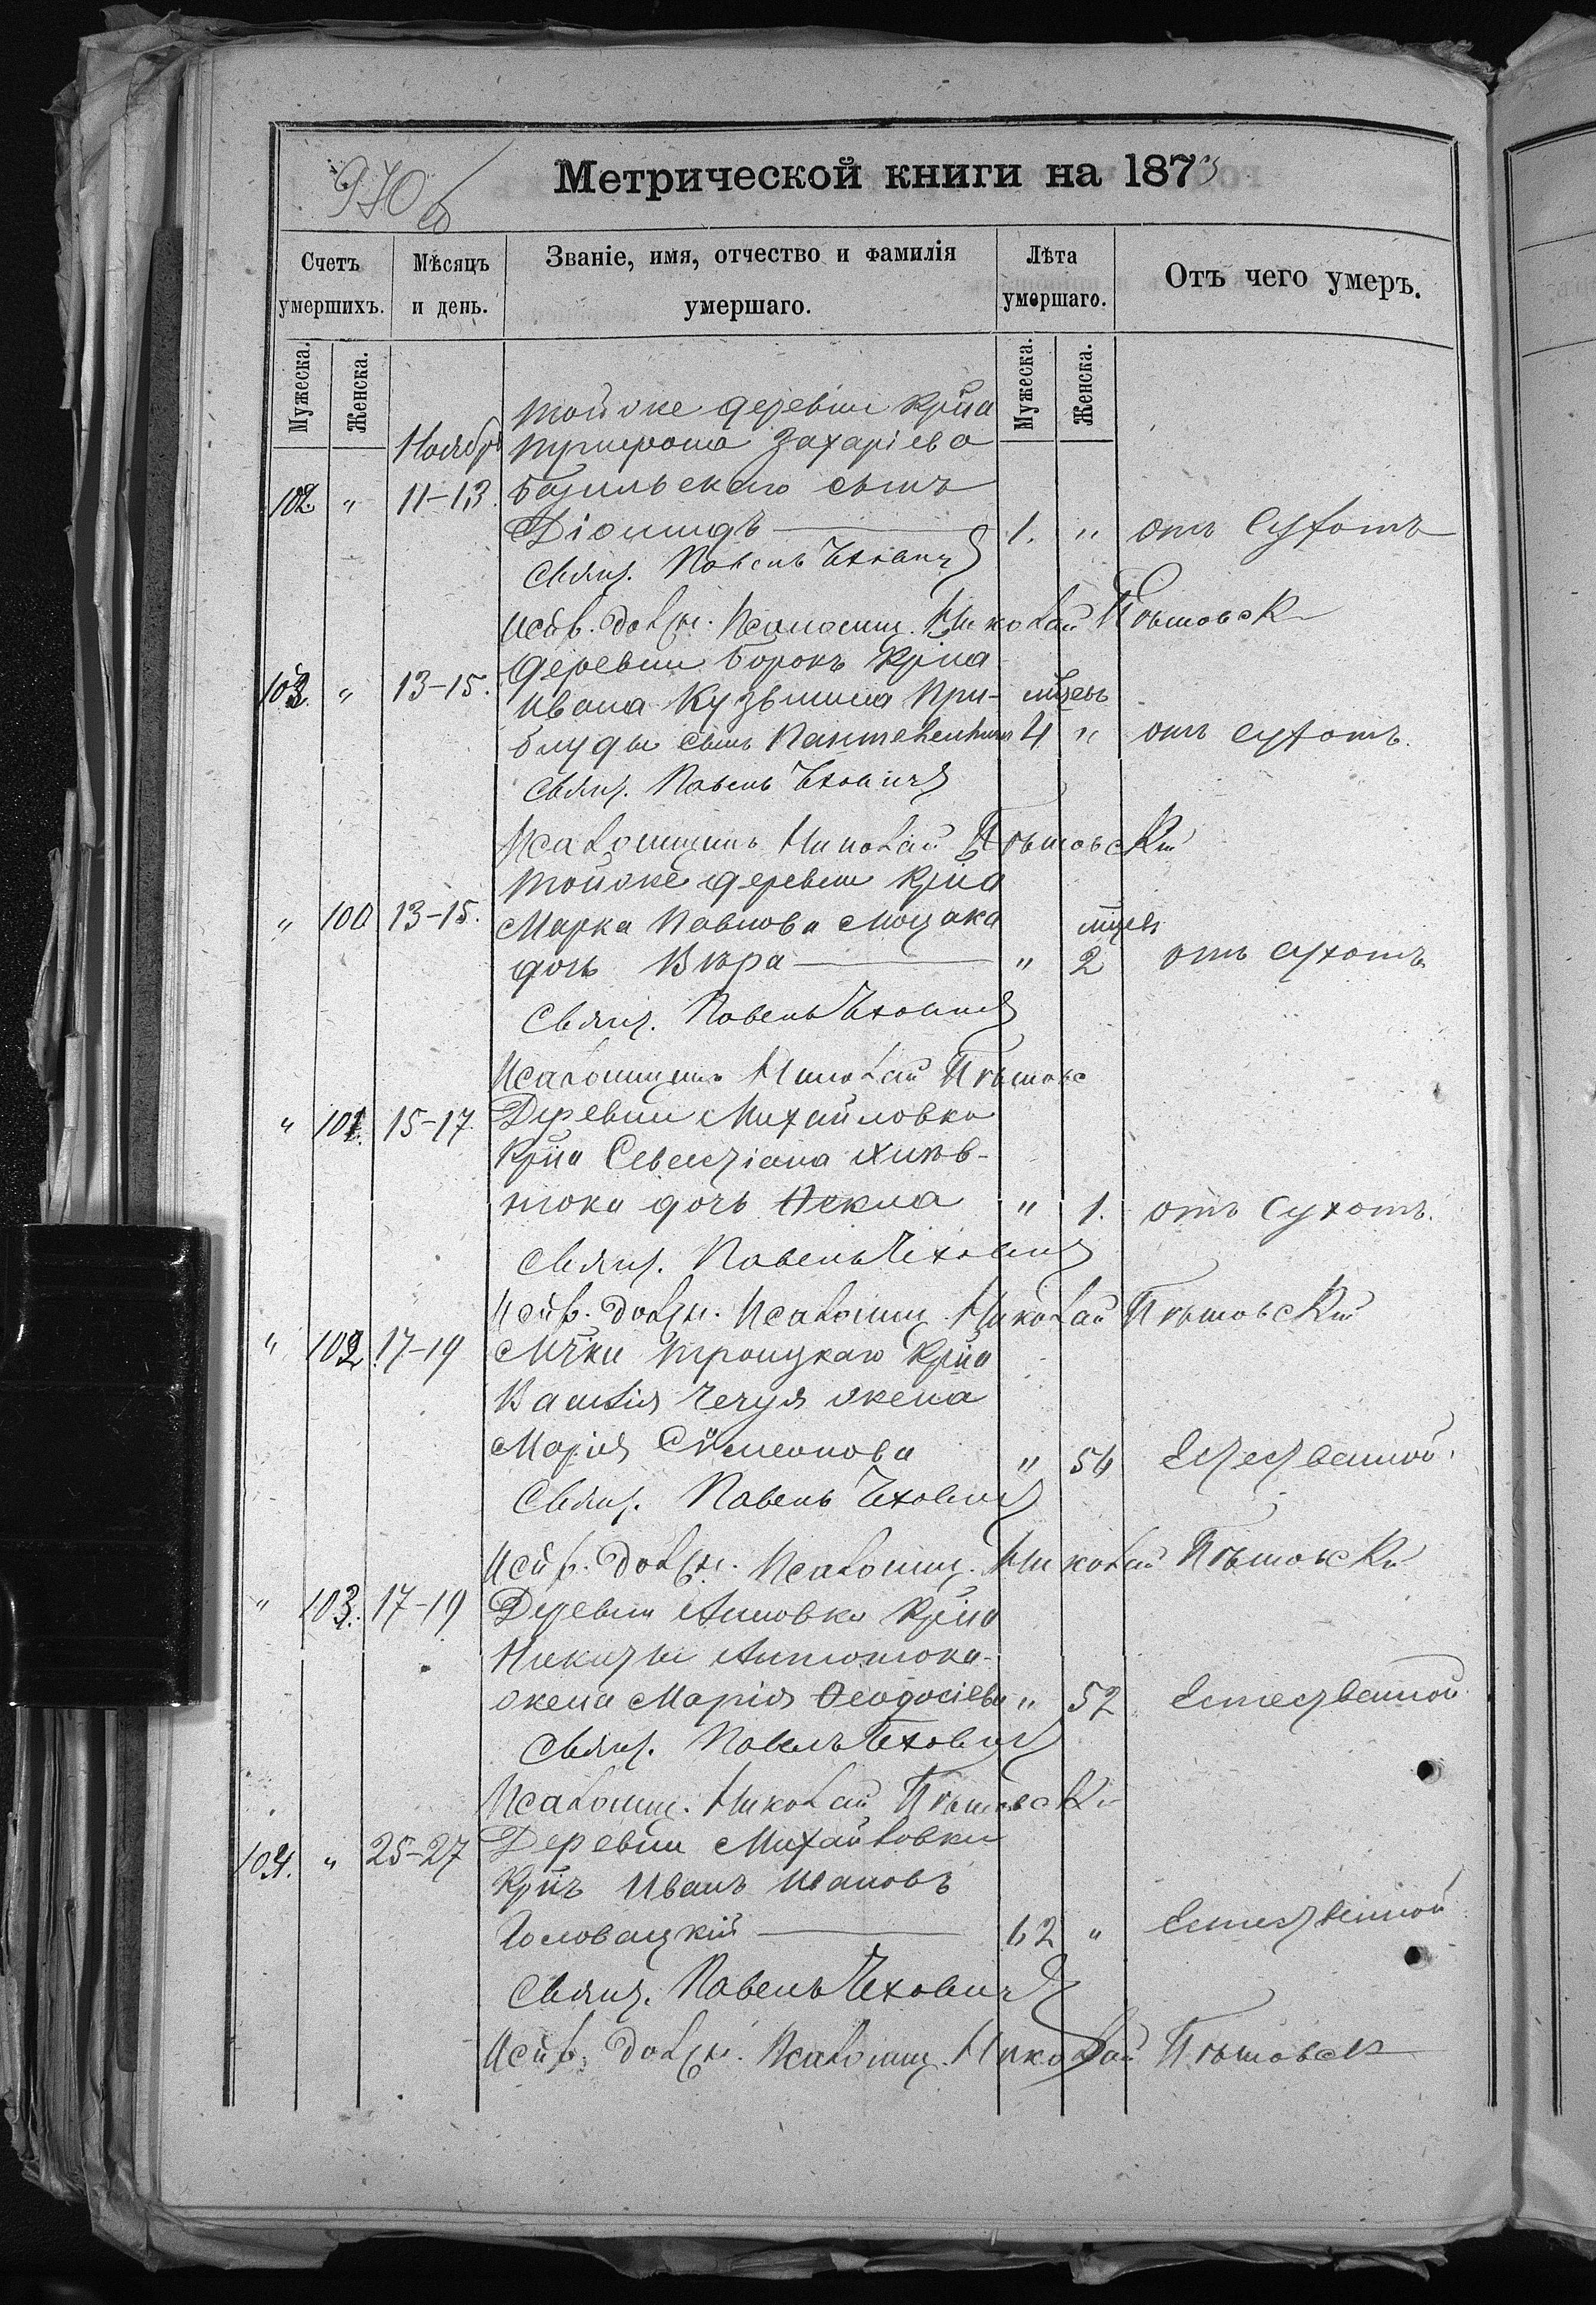 970 об
Метрической книги на 1873
Счетъ умершихъ.
Мѣсяцъ и день.
Званіе, имя, отчество и фамилія умершаго.
Лѣта умершаго.
Отъ чего умеръ.
Мужеска. Женска. Мужеска. Женска.
Ноябрь
тойже деревни Крпна
Захаріева
102. " 11-13. сынъ
Діомидъ 1. " отъ сухотъ
Свящ. Павелъ Чеховичъ
Испр. долж. Псаломщ. Николай
103. " 13-15. Деревни Борокъ Крпна
Ивана Кузьмина При- мцевъ
блуды сынъ Пантелеимонъ 4 " отъ сухотъ.
Свящ. Павелъ Чеховичъ
Псаломщикъ Николай
тойже деревни Крпна
" 100 13-15. Марка Павлова Моцака мцевъ
дочь Вѣра " 2 отъ сухотъ
Свящ. Павелъ Чеховичъ
Псаломщикъ Николай
" 101. 15-17. Деревни Михайловки
Крпна Севастіана
дочь Ѳекла " 1. отъ сухотъ.
Свящ. Павелъ Чеховичъ
Испр. долж. Псаломщ. Николай
" 102. 17-19 Мѣчки Троицкаго Крпна
Василія Чечуя жена
Марія Сѵмеонова " 56 Естественной
Свящ. Павелъ Чеховичъ
Испр. долж. Псаломщ. Николай
" 103. 17-19 Деревни Анновки Крпна
Никиты Антонюка
жена Марія Ѳеодосіева " 52 Естественной
Свящ. Павелъ Чеховичъ
Псаломщ. Николай
104. " 25-27 Деревни Михайловки
Крпнъ Иванъ Ивановъ
Головацкій 62 " Естественной
Свящ. Павелъ Чеховичъ
Испр. долж. Псаломщ. Николай